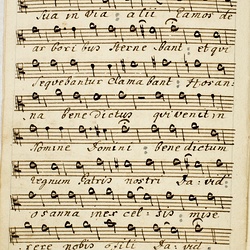 sua in via alii ramos de
arboribus sterne bant et qui
sequebantur Clamabant Hosan:
na benedictus qui venit in
Nomine Domini benedictum
regnum Patris nostri Da:vid:
osanna in ex cel:sis mise
rere nobis o fili Da:vid: